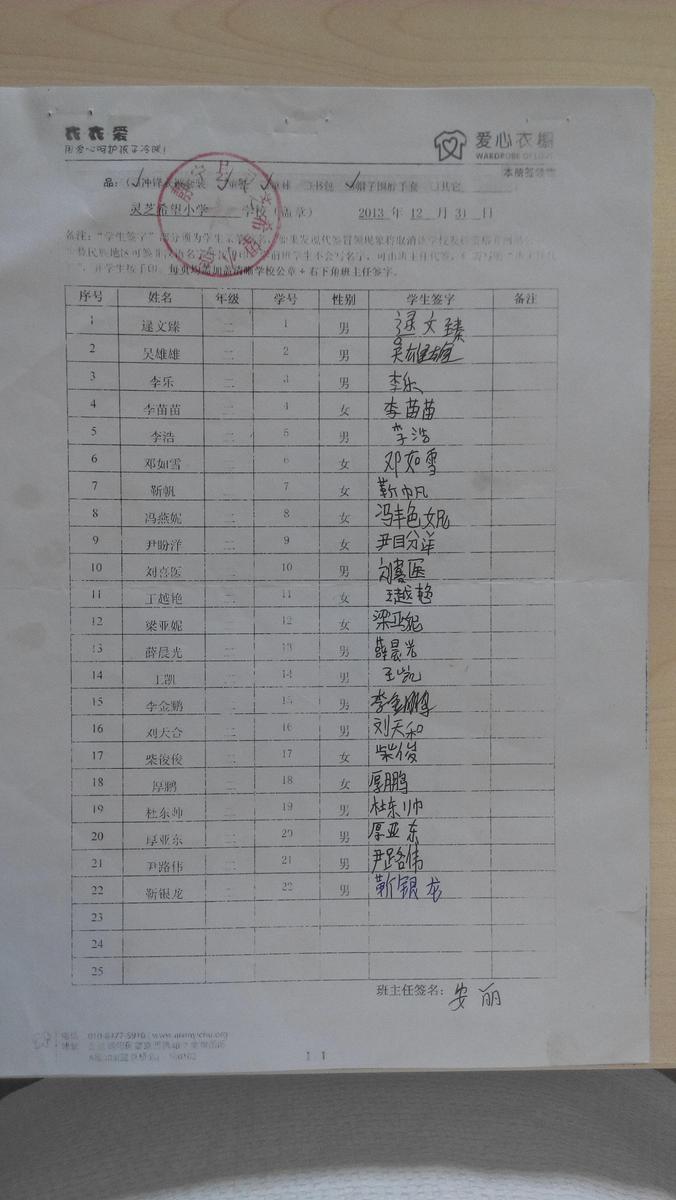 衣衣爱
用爱心呵护孩子冷暖!
爱心衣橱
WARDROBE OF LOVE
本德签领馆
灵芝希望小学 学校(盖章) 2013 年 12 月 31 日
每页均需加盖清晰学校公章+右下角班主任签字。
序号 姓名 年级 学号 性别 学生签字 备注
1 逯文臻 二 1 男 逯文臻
2 吴雄雄 二 2 男 吴雄雄
3 李乐 二 3 男 李乐
4 李苗苗 二 4 女 李苗苗
5 李浩 二 5 男 李浩
6 邓如雪 二 6 女 邓如雪
7 靳帆 二 7 女 靳帆
8 冯燕妮 二 8 女 冯艳妮
9 尹盼洋 二 9 女 尹盼洋
10 刘喜医 二 10 男 刘喜医
11 王越艳 二 11 女 王越艳
12 梁亚妮 二 12 女 梁亚妮
13 薛晨光 二 13 男 薛晨光
14 王凯 二 14 男 王凯
15 李金鹏 二 15 男 李金鹏
16 刘天合 二 16 男 刘天和
17 柴俊俊 二 17 女 柴俊
18 厚鹏 二 18 女 厚鹏
19 杜东帅 二 19 男 杜东帅
20 厚亚东 二 20 男 厚亚东
21 尹路伟 二 21 男 尹路伟
22 靳银龙 二 22 男 靳银龙
23
24
25
班主任签名: 安丽